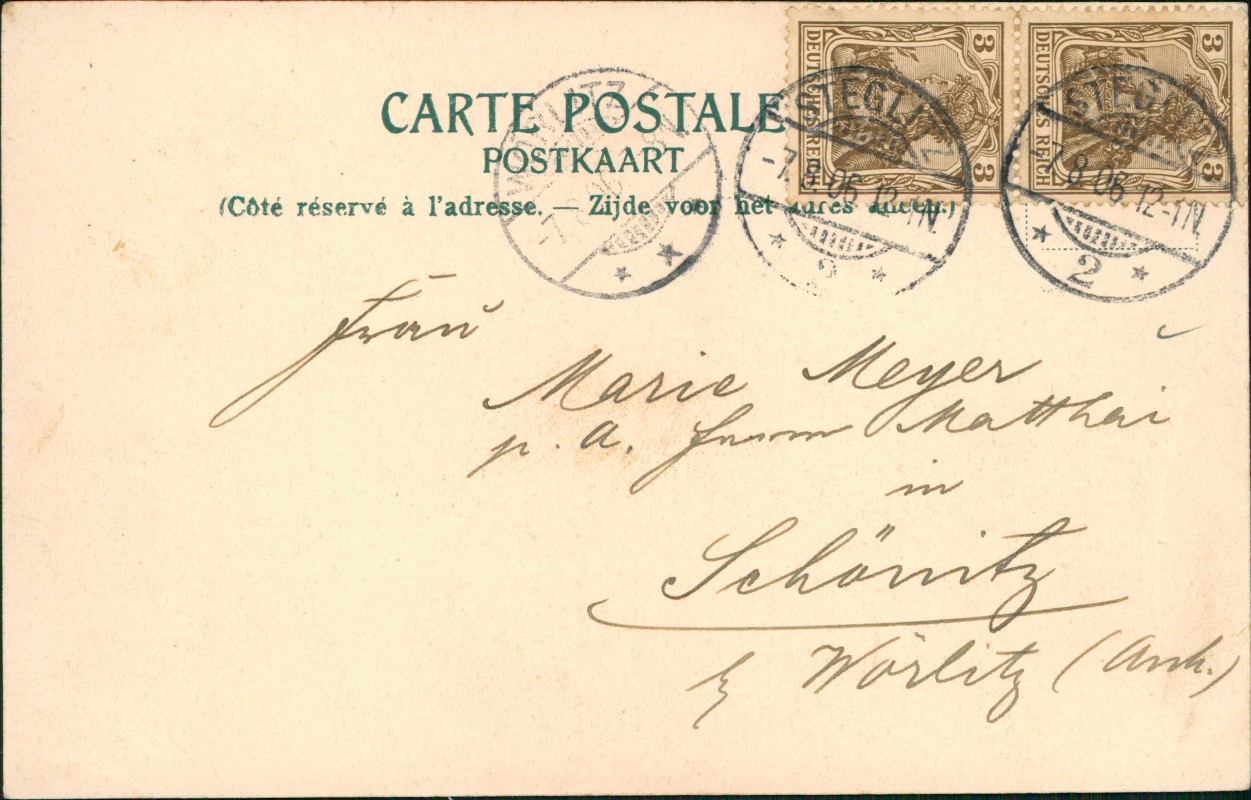 DEUTSCHES REICH 3 3
DEUTSCHES REICH 3 3
CARTE POSTALE
POSTKAART
(Côté réservé à l'adresse. — Zijde voor het adres alleen.)
WÖRLITZ
-7.8.06
STEGLITZ
-7.8.06 12-1N.
2
STEGLITZ
-7.8.06 12-1N.
2
Frau
Marie Meyer
p. A. Matthäi
in
Schönitz
Wörlitz (Anh.)